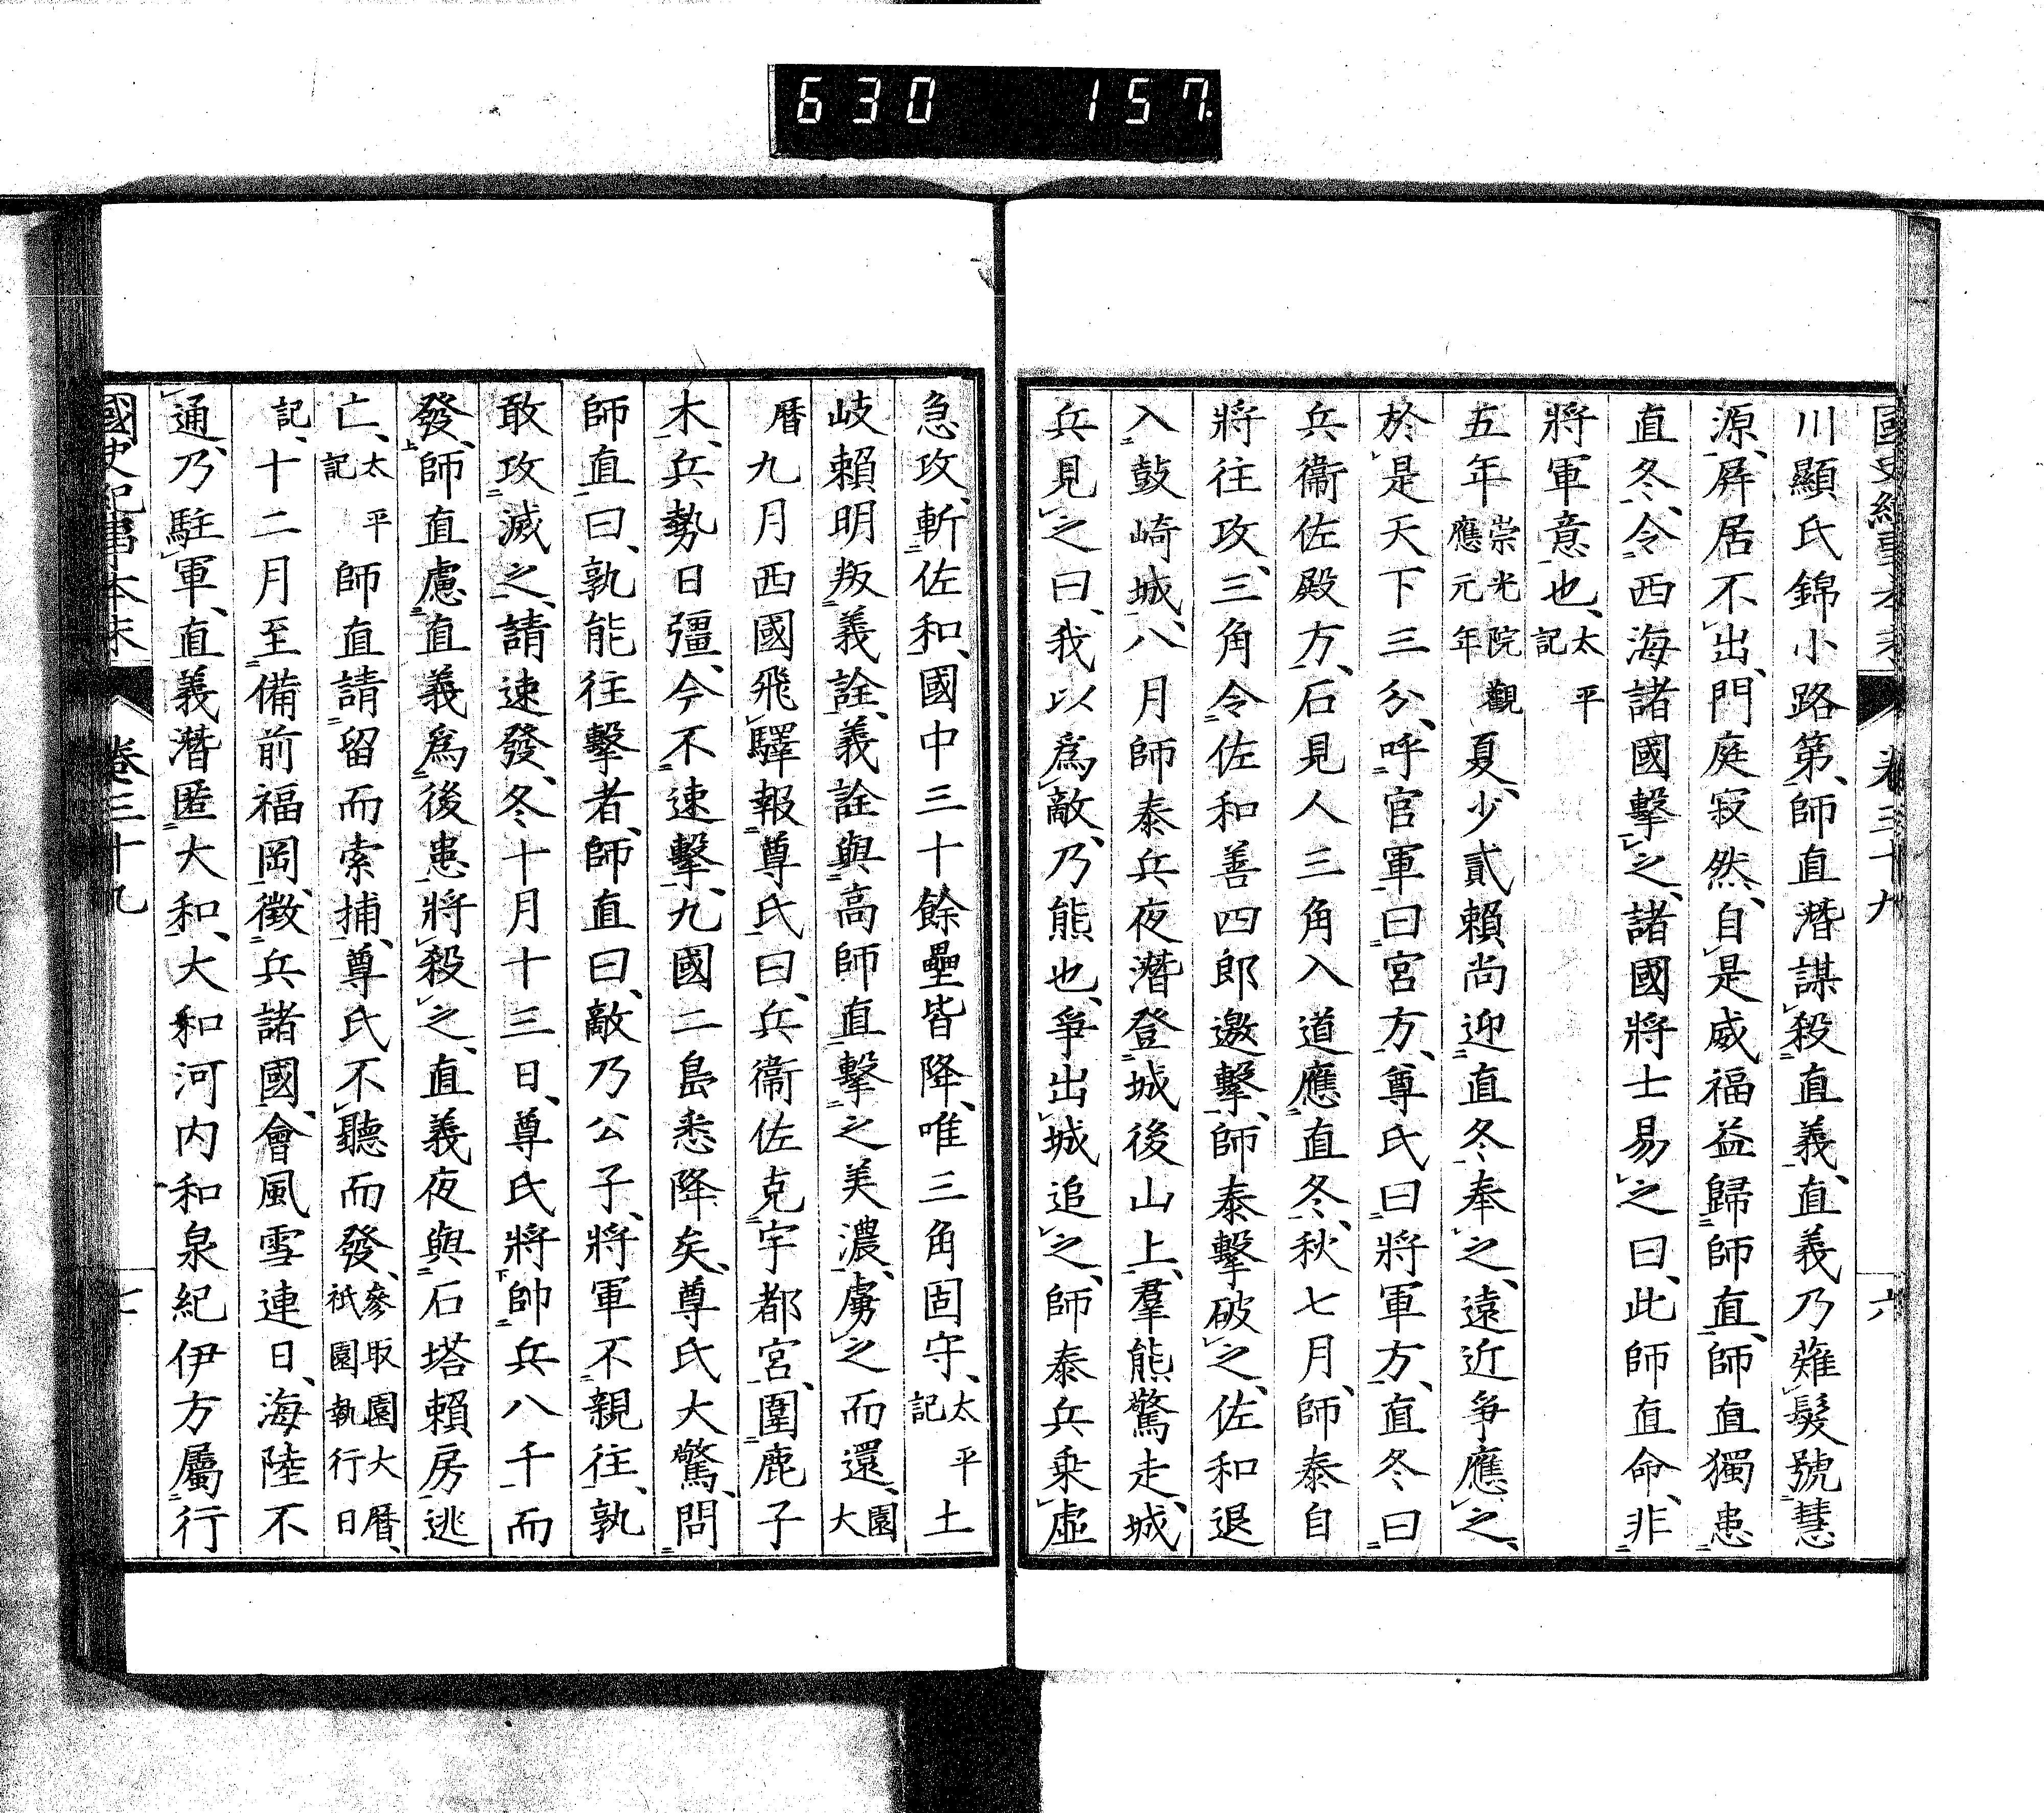 630 157
國史紀事本末 卷三十九 六
川顯氏錦小路第、師直潛謀殺直義、直義乃薙髮號慧
源、屛居不出、門庭寂然、自是威福益歸師直、師直獨患
直冬、令西海諸國擊之、諸國將士易之曰、此師直命、非
將軍意也、太平記
五年崇光院觀應元年夏、少貳賴尚迎直冬、奉之、遠近爭應之、
於是天下三分、呼官軍曰宮方、尊氏曰將軍方、直冬曰
兵衞佐殿方、石見人三角入道應直冬、秋七月、師泰自
將往攻、三角令佐和善四郎邀擊、師泰擊破之、佐和退
入鼓崎城、八月師泰兵夜潛登城後山上、羣熊驚走、城
兵見之曰、我以爲敵、乃熊也、爭出城追之、師泰兵乘虛
急攻、斬佐和、國中三十餘壘皆降、唯三角固守、太平記土
岐賴明叛義詮、義詮與高師直擊之美濃、虜之而還、園大
曆九月西國飛驛報尊氏曰、兵衞佐克宇都宮、圍鹿子
木、兵勢日彊、今不速擊、九國二島悉降矣、尊氏大驚、問
師直曰、孰能往擊者、師直曰、敵乃公子、將軍不親往、孰
敢攻滅之、請速發、冬十月十三日、尊氏將帥兵八千而
發、師直慮直義爲後患、將殺之、直義夜與石塔賴房逃
亡、太平記師直請留而索捕、尊氏不聽而發、參取園大曆、祇園執行日
記、十二月至備前福岡、徵兵諸國、會風雪連日、海陸不
通、乃駐軍、直義潛匿大和、大和河內和泉紀伊方屬行
國史紀事本末 卷三十九 七